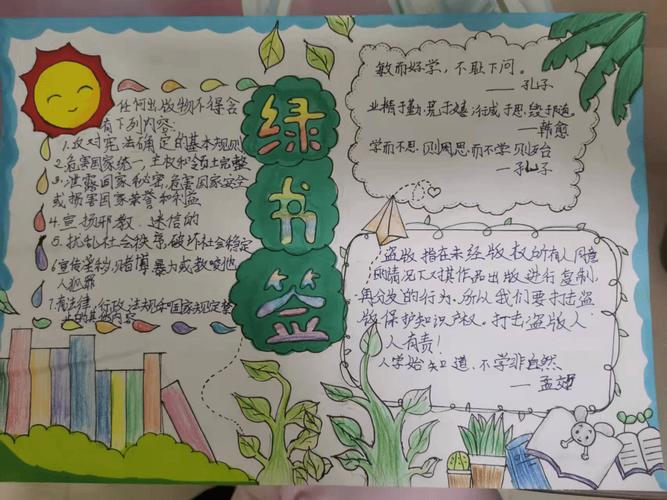 绿书签
任何出版物不得含
有下列内容:
1.反对宪法确定的基本规则
2.危害国家统一,主权和领土完整
3.泄露国家秘密,危害国家安全
或损害国家荣誉和利益
4.宣扬邪教、迷信的
5.扰乱社会秩序,破坏社会稳定
6.宣传淫秽,赌博暴力或教唆他
人犯罪
7.有法律,行政法规和国家规定禁
止的其他内容
敏而好学,不耻下问。
——孔子
业精于勤,荒于嬉,行成于思,毁于随。
——韩愈
学而不思,则罔思而不学,则殆
——孔子
盗版指在未经版权所有人同意
的情况下对其作品出版进行复制,
再分发的行为,所以我们要打击盗
版保护知识产权。打击盗版人
人有责!
人学始知道,不学非自然
——孟郊